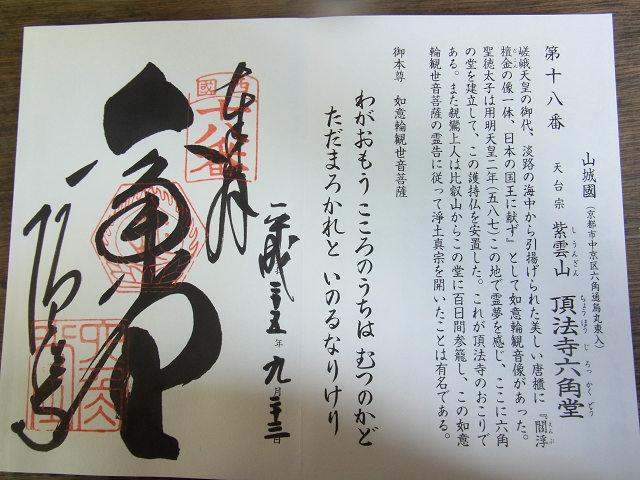 第十八番
山城國(京都市中京区六角通烏丸東入)
天台宗 紫雲山 頂法寺六角堂
しうんざん ちょうほうじ ろっかくどう
嵯峨天皇の御代、淡路の海中から引揚げられた美しい唐櫃に『閻浮
えんぶ
檀金の像一体、日本の国王に献ず』として如意輪観音像があった。
だごん
聖徳太子は用明天皇二年(五八七)この地で霊夢を感じ、ここに六角
の堂を建立して、この護持仏を安置した。これが頂法寺のおこりで
ある。また親鸞上人は比叡山からこの堂に百日間参籠し、この如意
輪観世音菩薩の霊告に従って淨土真宗を開いたことは有名である。
御本尊 如意輪観世音菩薩
わがおもう こころのうちは むつのかど
ただまろかれと いのるなりけり
平成二十五年九月二十三日
奉拝
西國十八番
六角堂